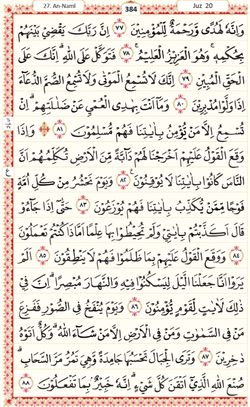 27. An-Naml 384 Juz 20
وَاِنَّهٗ لَهُدًى وَّرَحْمَةٌ لِّلْمُؤْمِنِيْنَ ٧٧ اِنَّ رَبَّكَ يَقْضِيْ بَيْنَهُمْ
بِحُكْمِهٖ ۚ وَهُوَ الْعَزِيْزُ الْعَلِيْمُ ٧٨ فَتَوَكَّلْ عَلَى اللّٰهِ ۗ اِنَّكَ عَلَى
الْحَقِّ الْمُبِيْنِ ٧٩ اِنَّكَ لَا تُسْمِعُ الْمَوْتٰى وَلَا تُسْمِعُ الصُّمَّ الدُّعَآءَ
اِذَا وَلَّوْا مُدْبِرِيْنَ ٨٠ وَمَآ اَنْتَ بِهٰدِى الْعُمْيِ عَنْ ضَلٰلَتِهِمْ ۗ اِنْ
تُسْمِعُ اِلَّا مَنْ يُّؤْمِنُ بِاٰيٰتِنَا فَهُمْ مُّسْلِمُوْنَ ٨١ وَاِذَا
وَقَعَ الْقَوْلُ عَلَيْهِمْ اَخْرَجْنَا لَهُمْ دَآبَّةً مِّنَ الْاَرْضِ تُكَلِّمُهُمْ اَنَّ
النَّاسَ كَانُوْا بِاٰيٰتِنَا لَا يُوْقِنُوْنَ ٨٢ وَيَوْمَ نَحْشُرُ مِنْ كُلِّ اُمَّةٍ
فَوْجًا مِّمَّنْ يُّكَذِّبُ بِاٰيٰتِنَا فَهُمْ يُوْزَعُوْنَ ٨٣ حَتّٰٓى اِذَا جَآءُوْ
قَالَ اَكَذَّبْتُمْ بِاٰيٰتِيْ وَلَمْ تُحِيْطُوْا بِهَا عِلْمًا اَمَّاذَا كُنْتُمْ تَعْمَلُوْنَ
٨٤ وَوَقَعَ الْقَوْلُ عَلَيْهِمْ بِمَا ظَلَمُوْا فَهُمْ لَا يَنْطِقُوْنَ ٨٥ اَلَمْ
يَرَوْا اَنَّا جَعَلْنَا الَّيْلَ لِيَسْكُنُوْا فِيْهِ وَالنَّهَارَ مُبْصِرًا ۗ اِنَّ فِيْ
ذٰلِكَ لَاٰيٰتٍ لِّقَوْمٍ يُّؤْمِنُوْنَ ٨٦ وَيَوْمَ يُنْفَخُ فِى الصُّوْرِ فَفَزِعَ
مَنْ فِى السَّمٰوٰتِ وَمَنْ فِى الْاَرْضِ اِلَّا مَنْ شَآءَ اللّٰهُ ۗ وَكُلٌّ اَتَوْهُ
دٰخِرِيْنَ ٨٧ وَتَرَى الْجِبَالَ تَحْسَبُهَا جَامِدَةً وَّهِيَ تَمُرُّ مَرَّ السَّحَابِ ۗ
صُنْعَ اللّٰهِ الَّذِيْٓ اَتْقَنَ كُلَّ شَيْءٍ ۗ اِنَّهٗ خَبِيْرٌۢ بِمَا تَفْعَلُوْنَ ٨٨